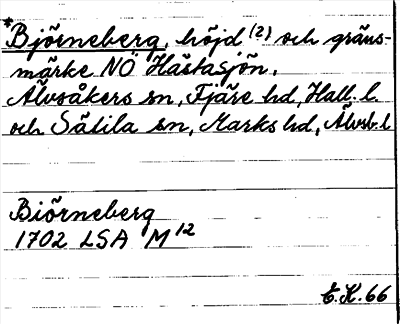 *Björneberg, höjd (2) och gräns-
märke NÖ Hästasjön.
Älvsåkers sn, Fjäre hd, Hall. l.
och Sätila sn, Marks hd, Älvsb. l
Biörneberg
1702 LSA M 12
E.K. 66